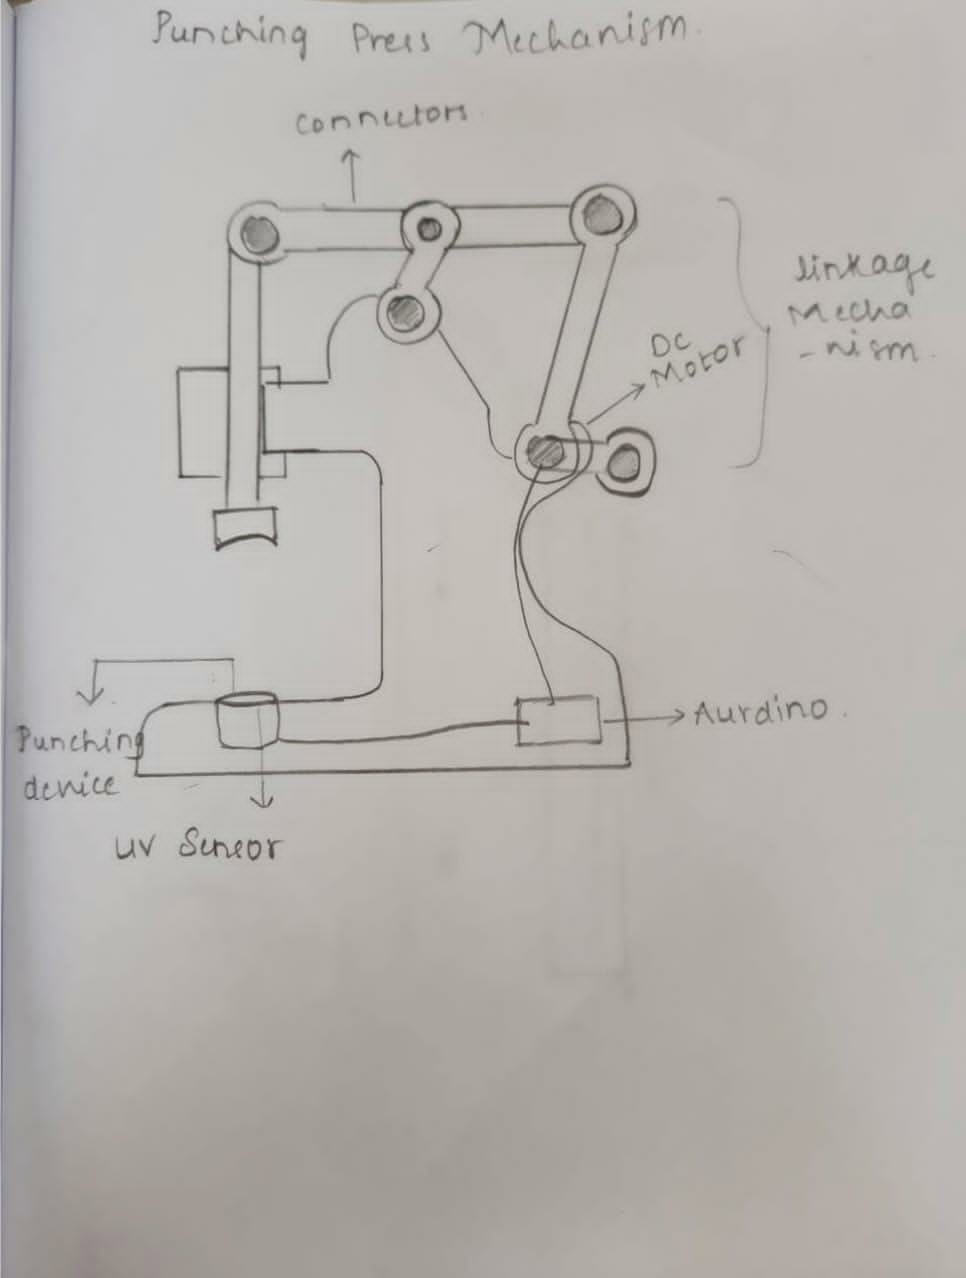 Punching Press Mechanism.
Connectors.
linkage
Mecha
-nism.
DC
Motor
Aurdino.
Punching
device
UV Sensor